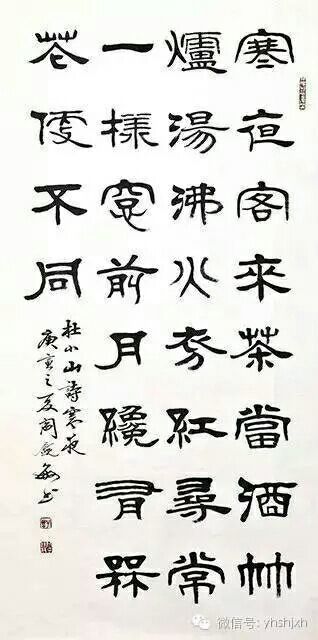 寒夜客來茶當酒竹
爐湯沸火初紅尋常
一樣窗前月纔有槑
花便不同
杜小山詩寒夜
庚寅之夏周書
微信号: yhshjxh